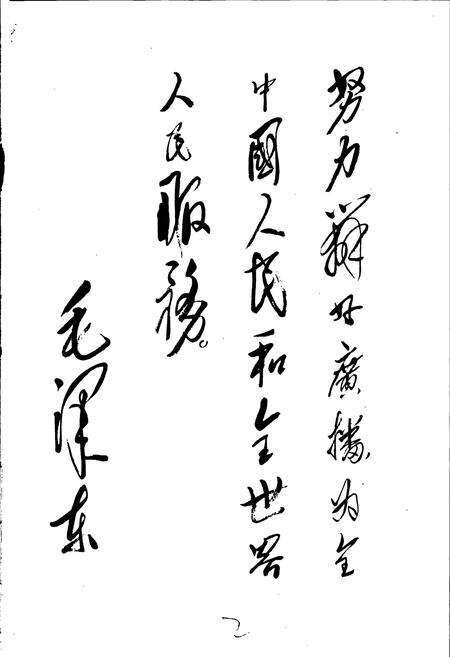 努力辦好廣播为全
中國人民和全世界
人民服務。
毛泽东